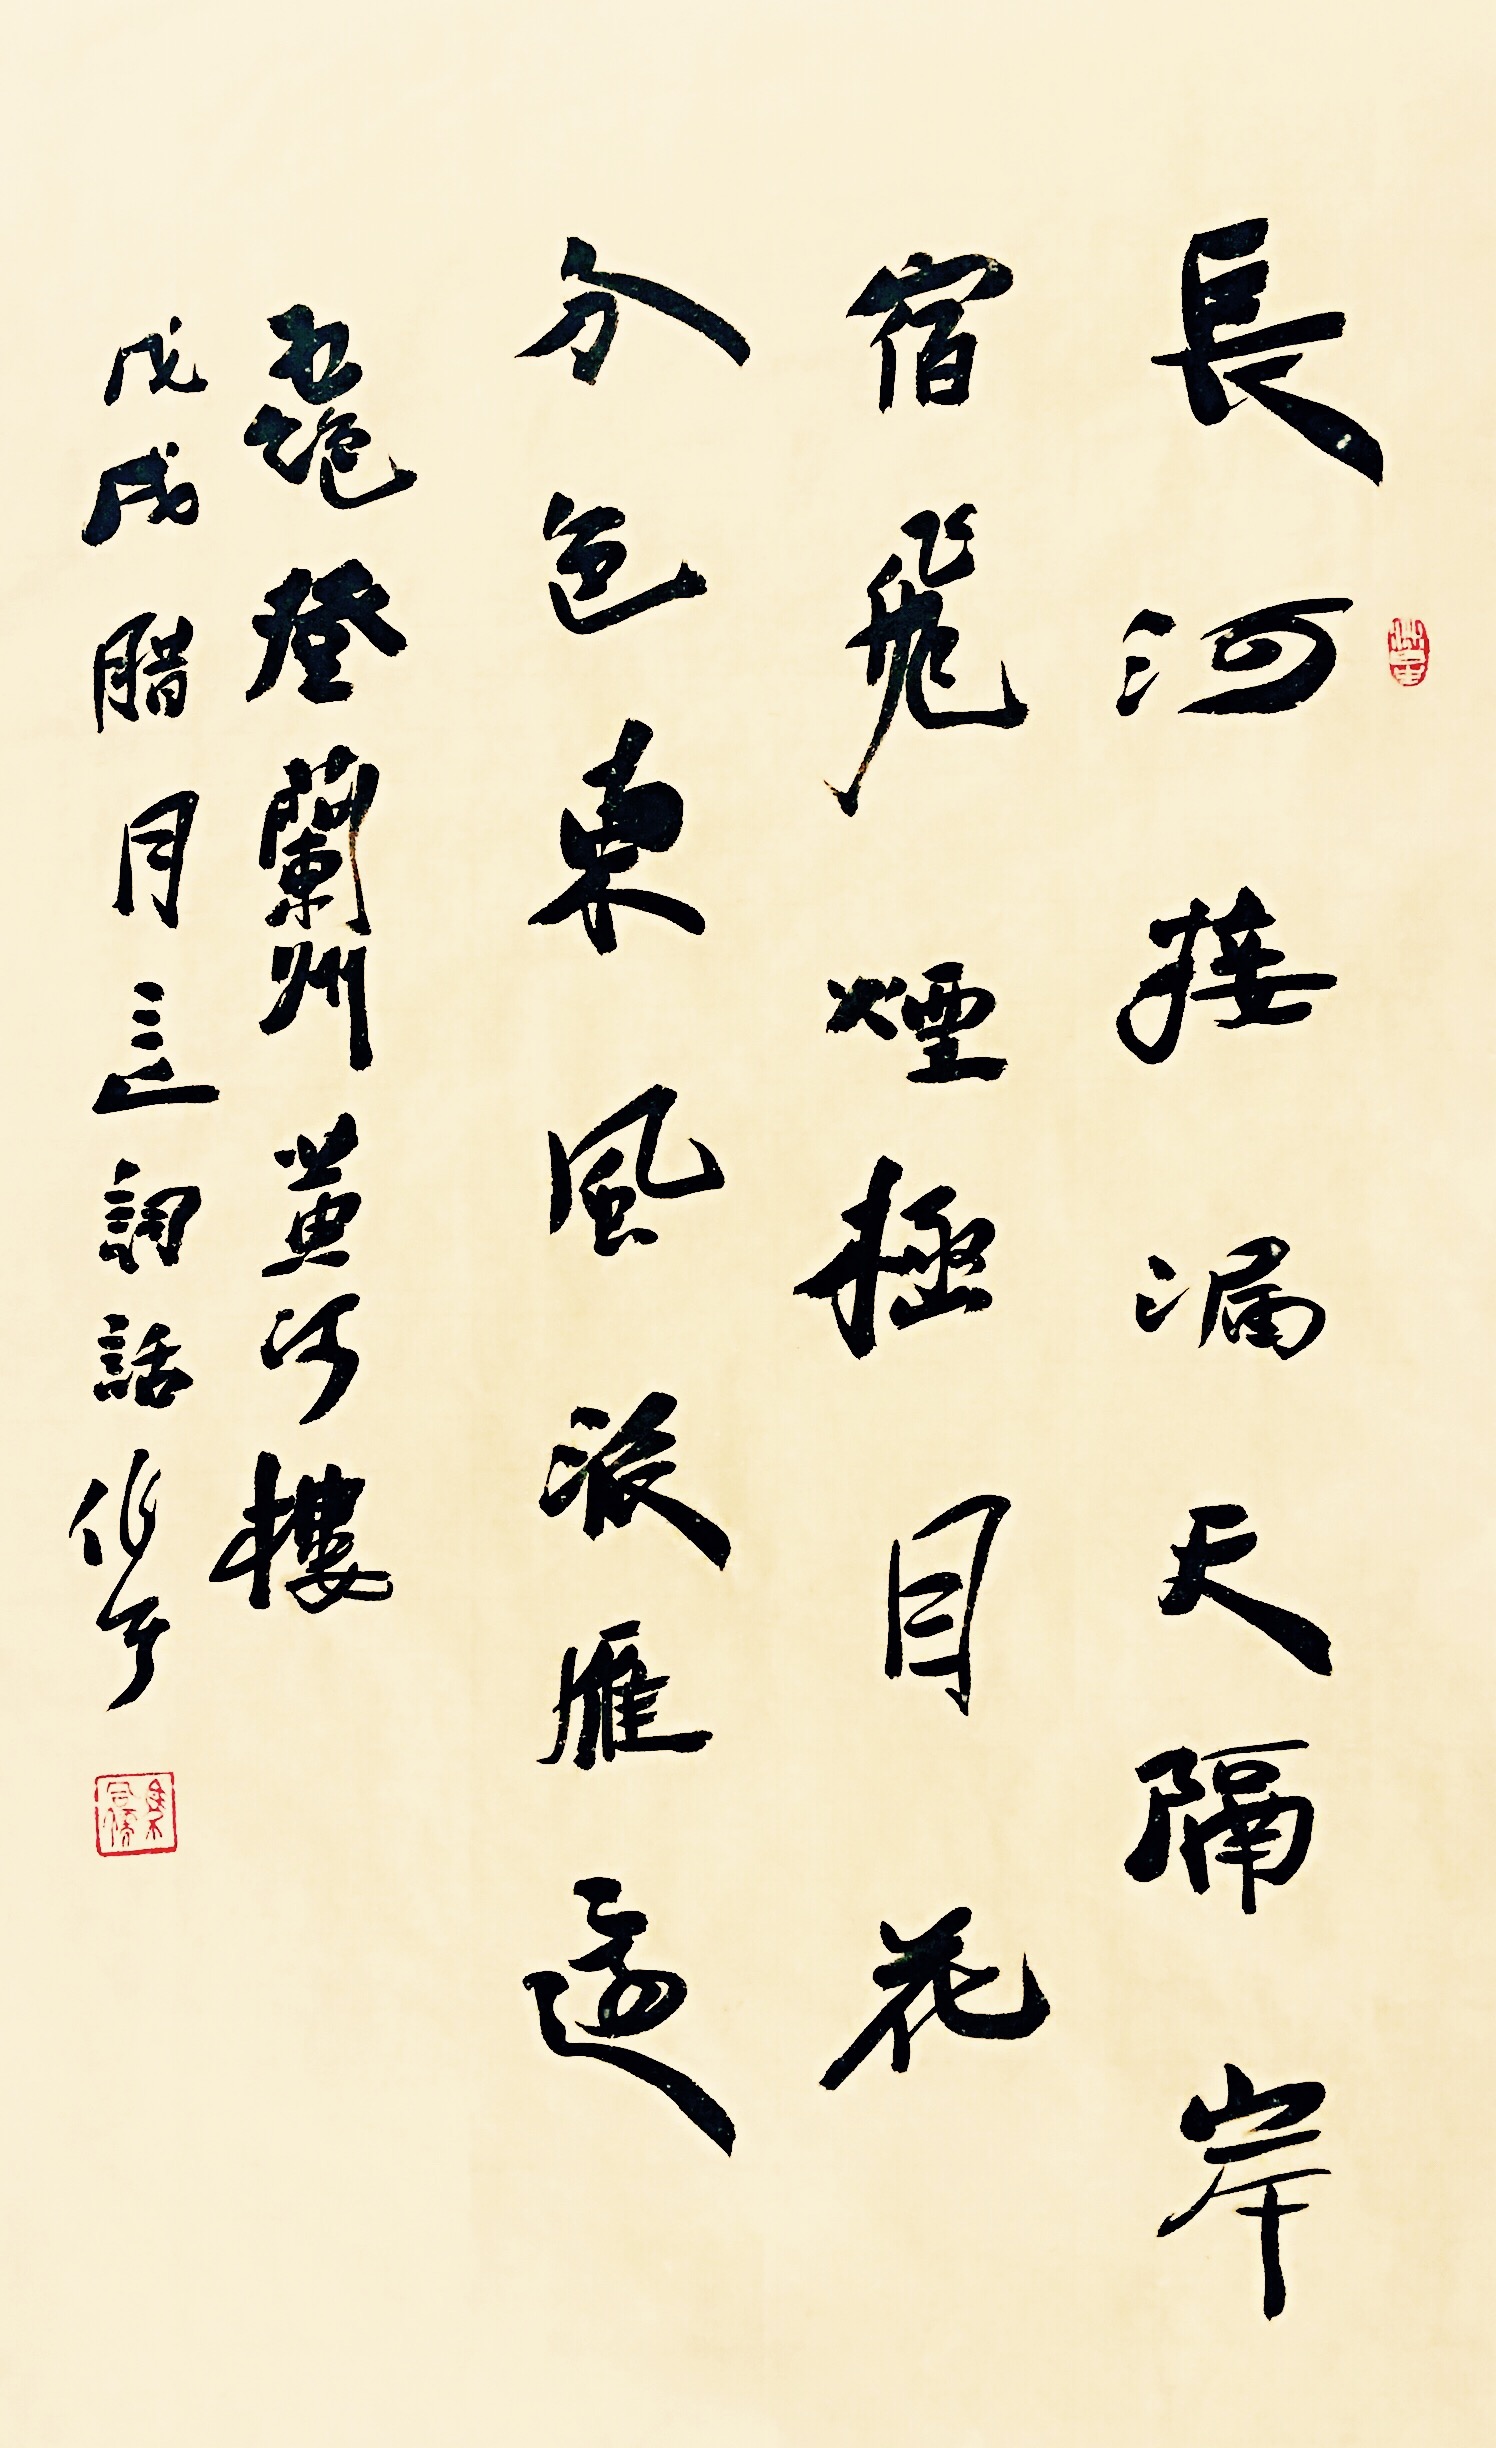 長河接漏天隔岸
宿飛煙極目花
分色東風派雁邊
五絕登蘭州黃河樓
戊戌腊月詞話